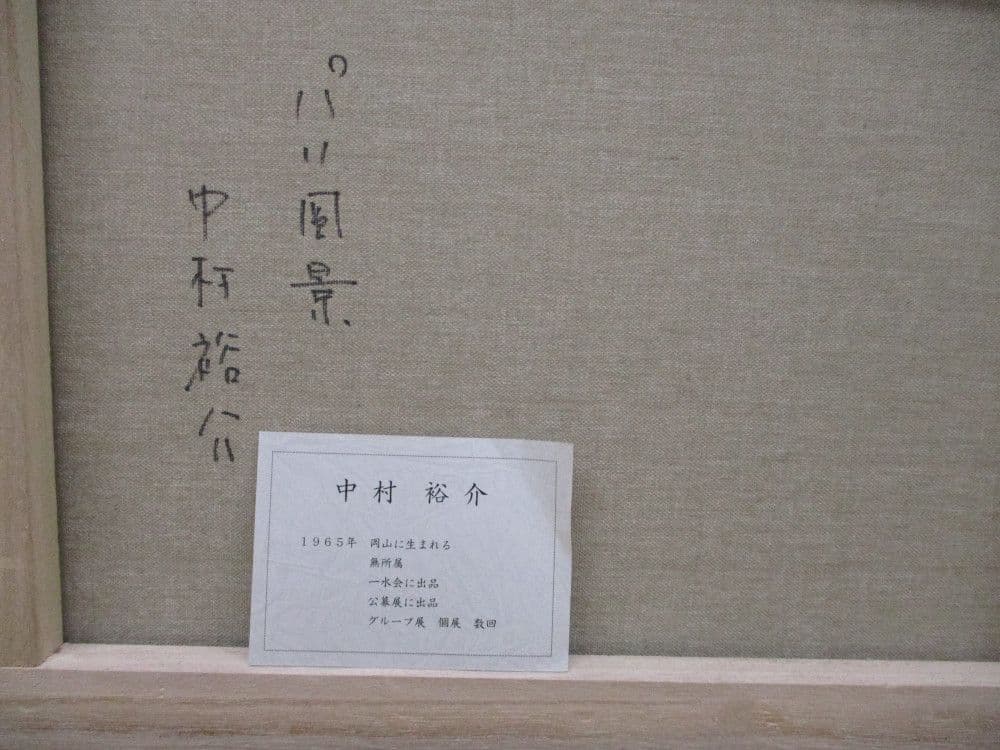 パリ風景、
中村裕介
中村 裕介
1965年 岡山に生まれる
無所属
一水会に出品
公募展に出品
グループ展 個展 数回